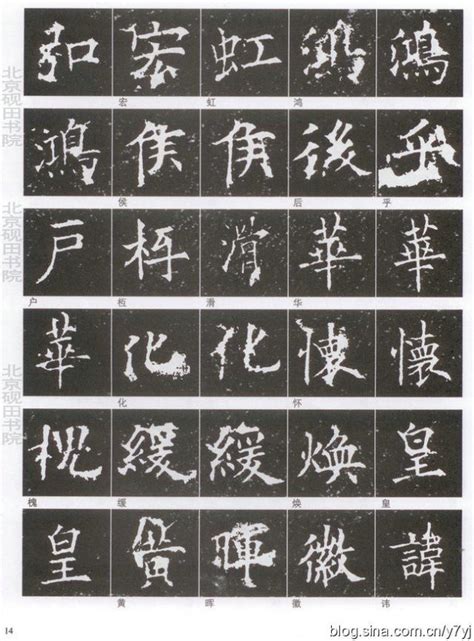 弘 宏 虹 鴻 鴻
宏 虹 鸿
鴻 侯 侯 後 乎
侯 后 乎
戶 枑 滑 華 華
户 枑 滑 华
華 化 化 懷 懷
化 怀
槐 緩 緩 焕 皇
槐 缓 焕 皇
皇 黄 暉 徽 諱
黄 晖 徽 讳
北京砚田书院
北京砚田书院
北京砚田书院
14
blog.sina.com.cn/y7yj